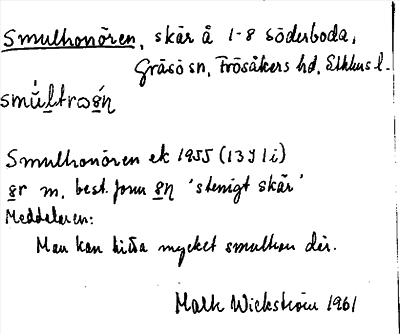 Smultronören, skär å 1-8 Söderboda,
Gräsö sn, Frösåkers hd, Sthlms l.
smúltrωøń̥
Smultronören ek 1955 (13 I 1i)
ør m, best. form øn̥ 'stenigt skär'
Meddelaren:
Man kan hitta mycket smultron där.
Wickström 1961